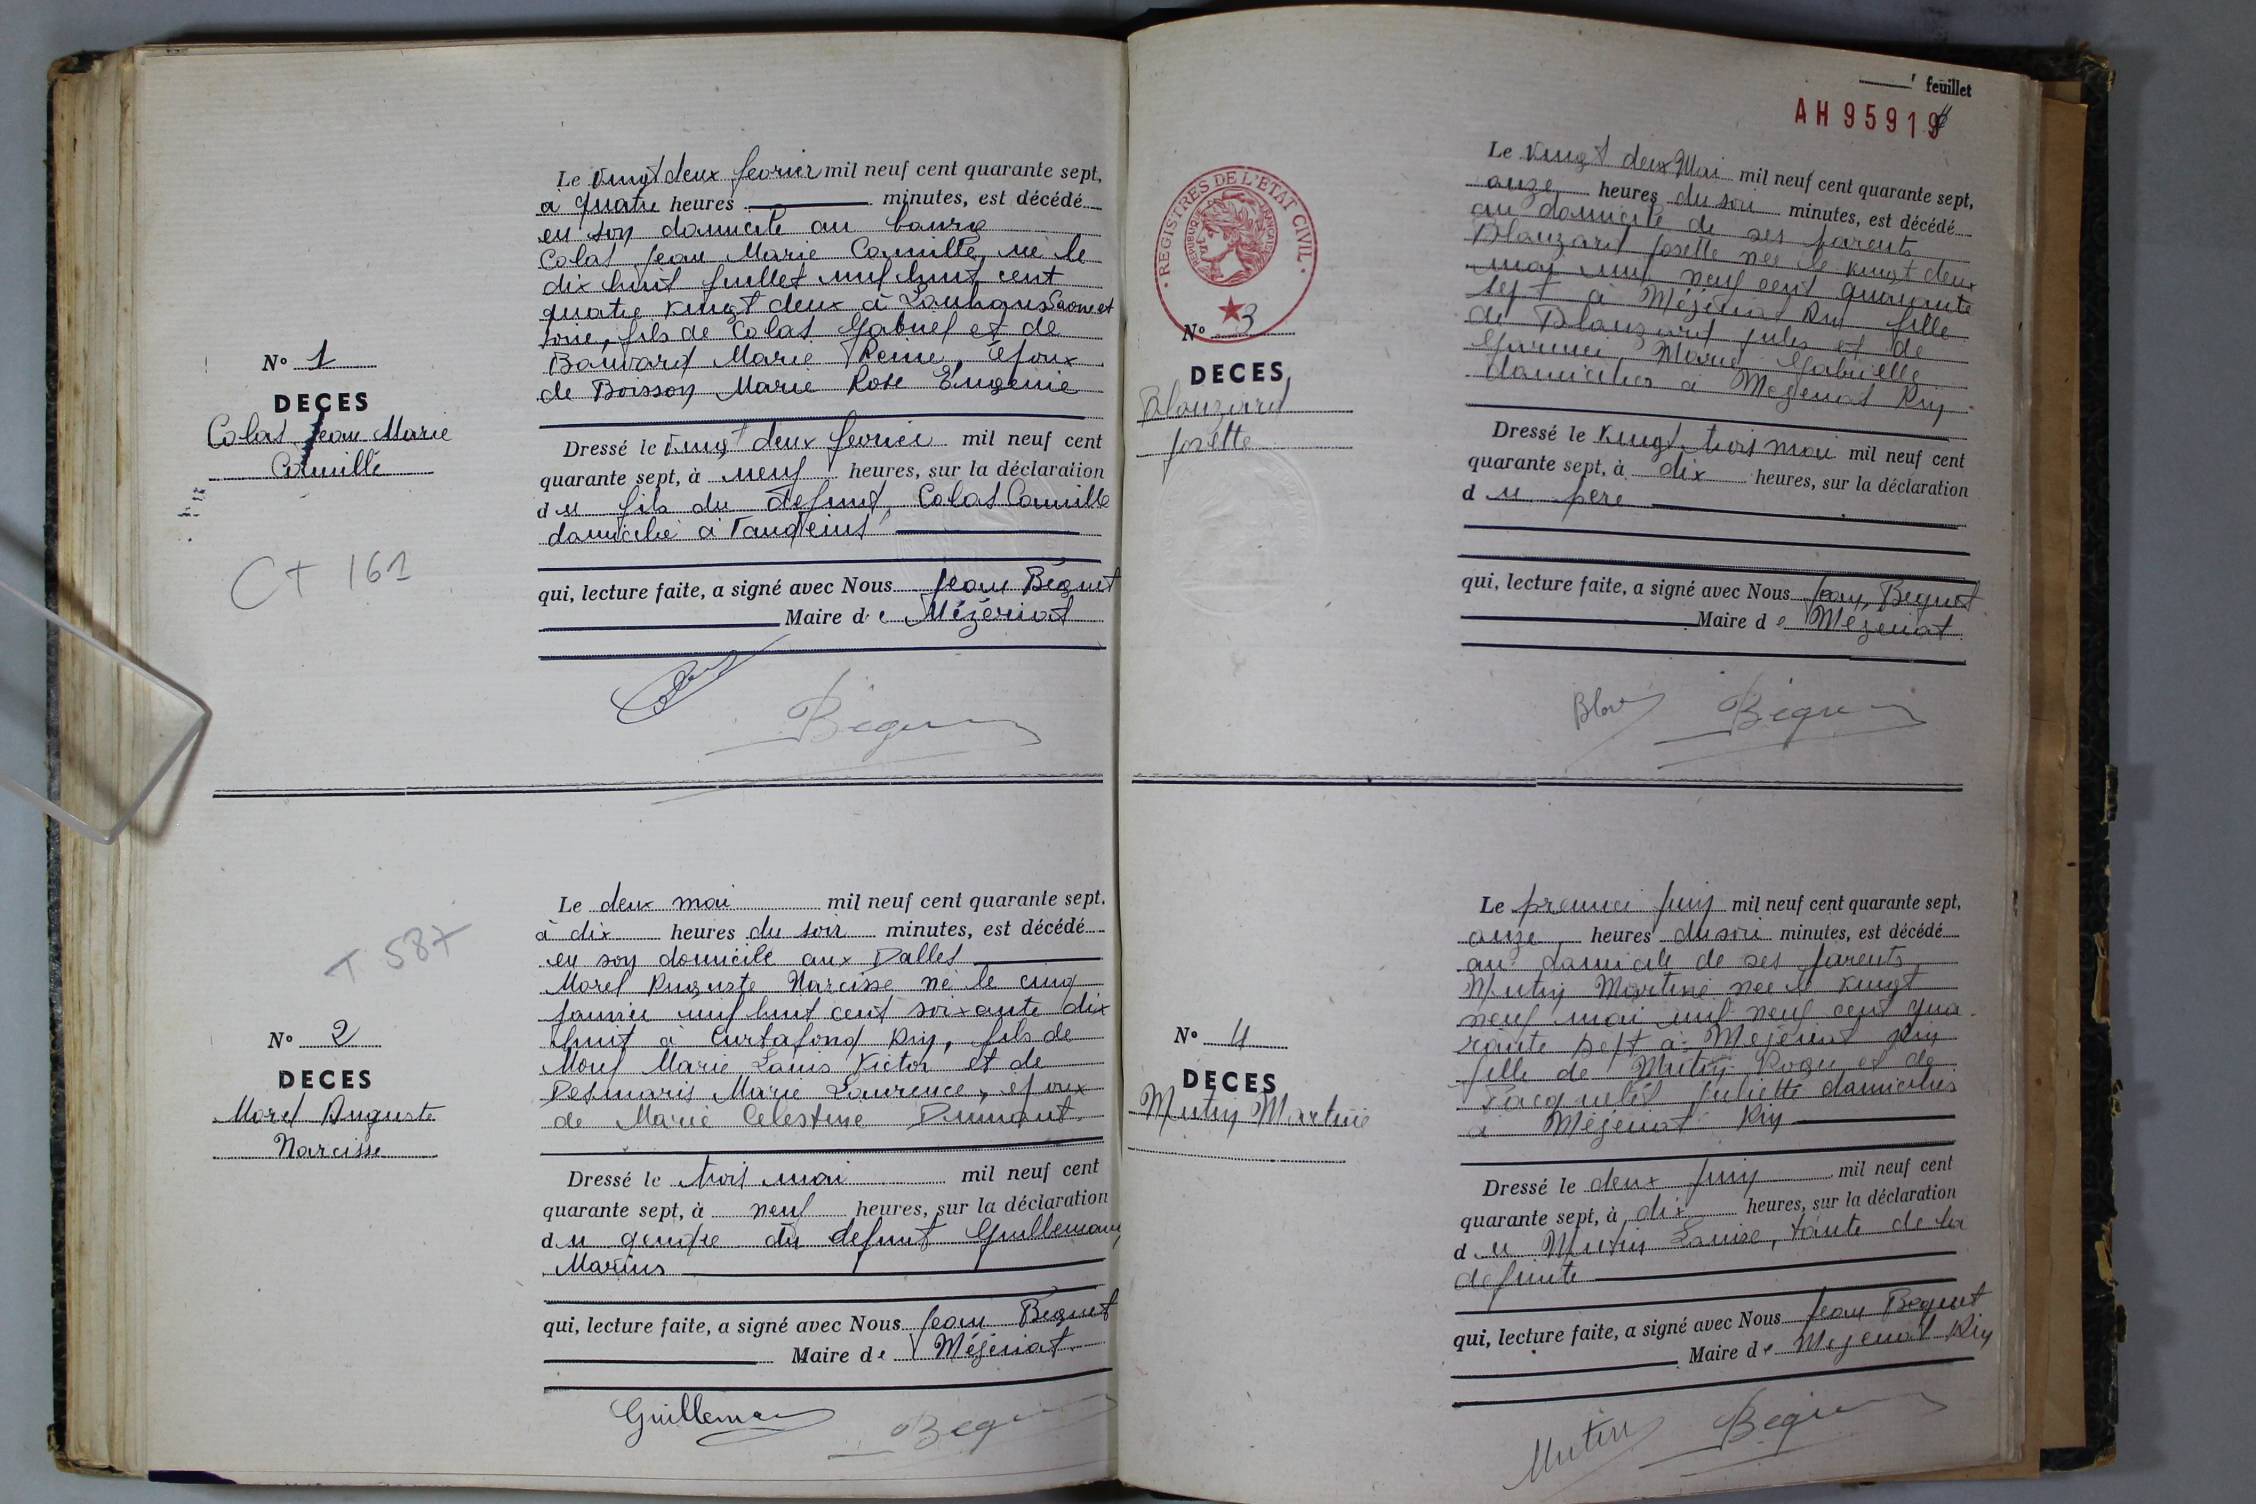 Le vingt deux fevrier mil neuf cent quarante sept,
a quatre heures minutes, est décédé
en son domicile au bourg
Colas Jean Marie Camille, né le
dix huit juillet mil huit cent
quatre vingt deux à Louhans Saone et
Loire, fils de Colas Gabriel et de
Bouvard Marie Reine, Epoux
de Boisson Marie Rose Eugenie
N° 1
DECES
Colas Jean Marie
Camille
Dressé le vingt deux fevrier mil neuf cent
quarante sept, à neuf heures, sur la déclaration
du fils du defunt, Colas Camille
domicilié à
CT 161
qui, lecture faite, a signé avec Nous Jean Béguet
Maire de Mézériat
Le deux mai mil neuf cent quarante sept.
à dix heures du soir minutes, est décédé
en son domicile aux Dalles
Morel Auguste Narcisse né le cinq
janvier mil huit cent soixante dix
huit à Curtafond Ain, fils de
Morel Marie Louis Victor et de
Desmaris Marie Laurence, epoux
de Marie Celestine Dumont.
T 587
N° 2
DECES
Morel Auguste
Narcisse
Dressé le trois mai mil neuf cent
quarante sept, à neuf heures, sur la déclaration
du gendre du defunt Guillemaux
Marius
qui, lecture faite, a signé avec Nous Jean Béguet
Maire de Mézériat.
feuillet
AH 9591
REGISTRES DE L'ETAT CIVIL
REPUBLIQUE FRANÇAISE
N° 3
DECES
Blouzard
Josette
Le vingt deux Mai mil neuf cent quarante sept,
onze heures du soir minutes, est décédé
au domicile de ses parents
Blouzard Josette née le vingt deux
mai mil neuf cent quarante
sept à Mézériat Ain fille
de Blouzard Jules et de
Marie Gabrielle
domiciliés à Mézériat Ain.
Dressé le vingt trois mai mil neuf cent
quarante sept, à dix heures, sur la déclaration
du père
qui, lecture faite, a signé avec Nous Jean, Béguet
Maire de Mézériat
Le premier juin mil neuf cent quarante sept,
onze heures du soir minutes, est décédé
au domicile de ses parents
Mutin Martine née le vingt
neuf mai mil neuf cent qua-
rante sept à Mézériat Ain
fille de Mutin Roger et de
Juliette domiciliés
à Mézériat Ain
N° 4
DECES
Mutin Martine
Dressé le deux juin mil neuf cent
quarante sept, à dix heures, sur la déclaration
du Mutin Louise, tante de la
defunte
qui, lecture faite, a signé avec Nous Jean Béguet
Maire de Mézériat Ain
Mutin